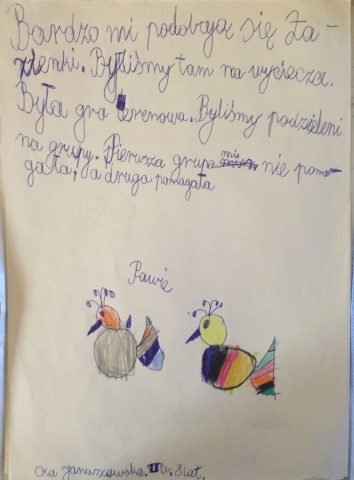 Bardzo mi podobają się Ła-
zienki. Byliśmy tam na wyciecza.
Była gra terenowa. Byliśmy podzieleni
na grupy. Pierwsza grupa mie nie poma-
gała, a druga pomagała
Pawie
Ola Januszewska. 8 lat.